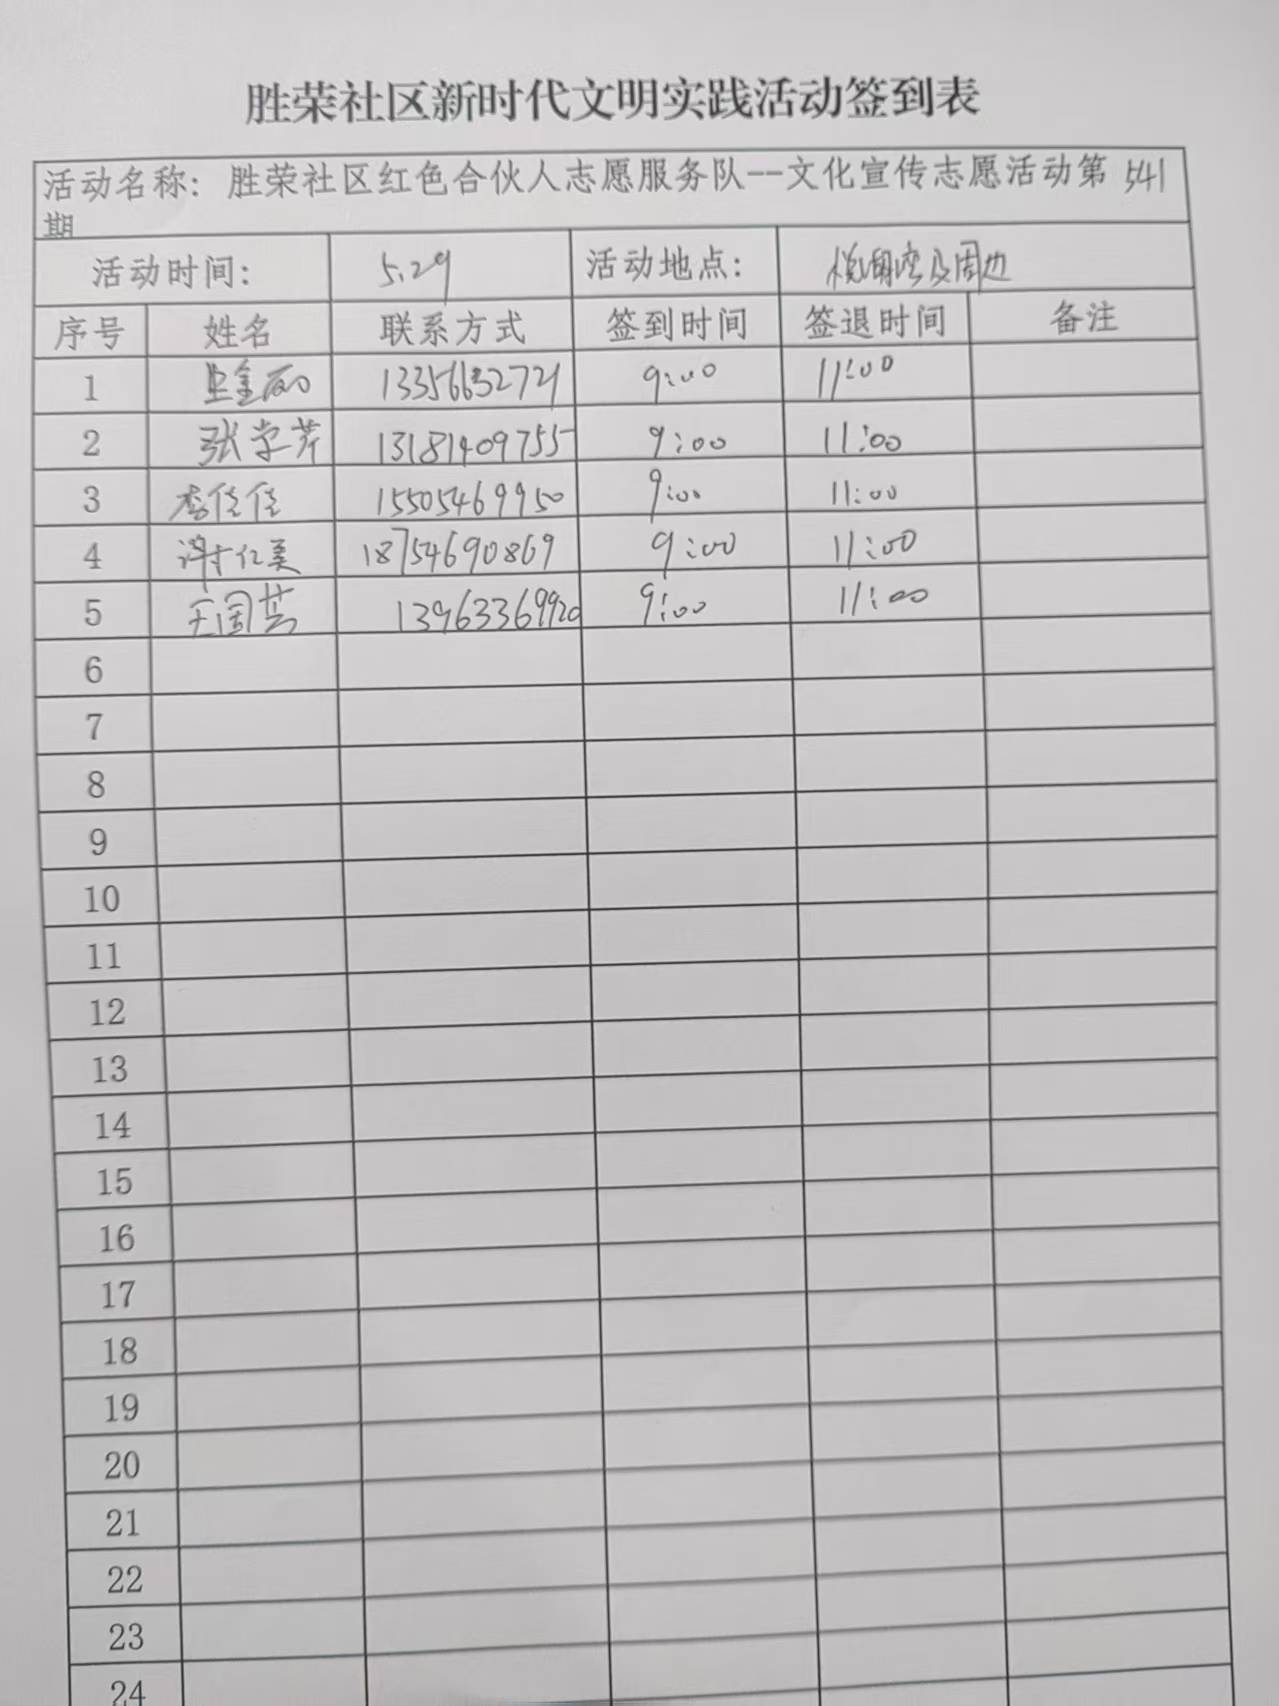 胜荣社区新时代文明实践活动签到表
活动名称：胜荣社区红色合伙人志愿服务队--文化宣传志愿活动第 541
期
活动时间： 5.29 活动地点： 及周边
序号 姓名 联系方式 签到时间 签退时间 备注
1 13356632721 9:00 11:00
2 张学芹 13181409755 9:00 11:00
3 李佳佳 15505469950 9:00 11:00
4 谢仁美 18754690869 9:00 11:00
5 王国芸 13963369920 9:00 11:00
6
7
8
9
10
11
12
13
14
15
16
17
18
19
20
21
22
23
24